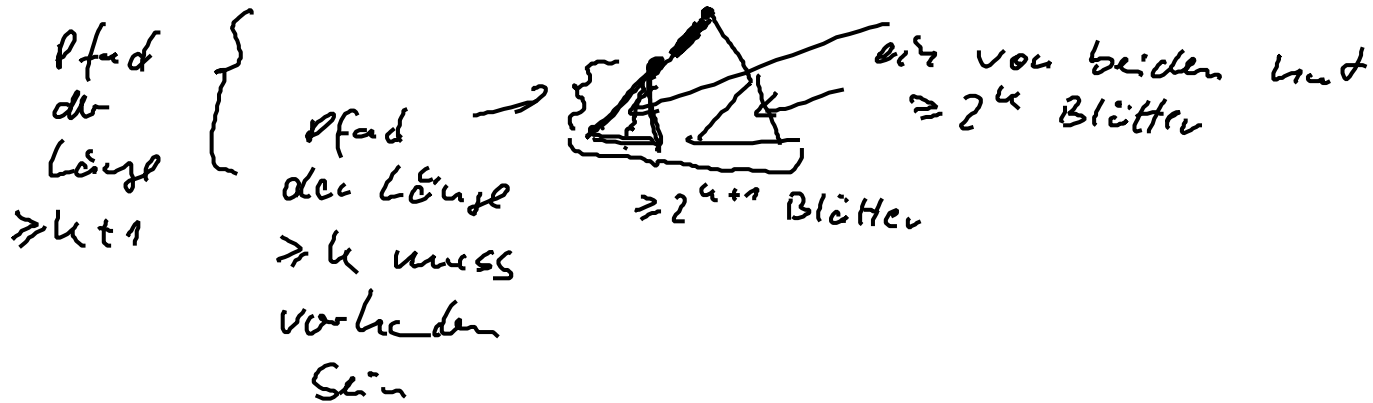 Pfad
der
Länge
≥k+1
Pfad
der Länge
≥k muss
vorhanden
sein
ein von beiden hat
≥2^k Blätter
≥2^{k+1} Blätter